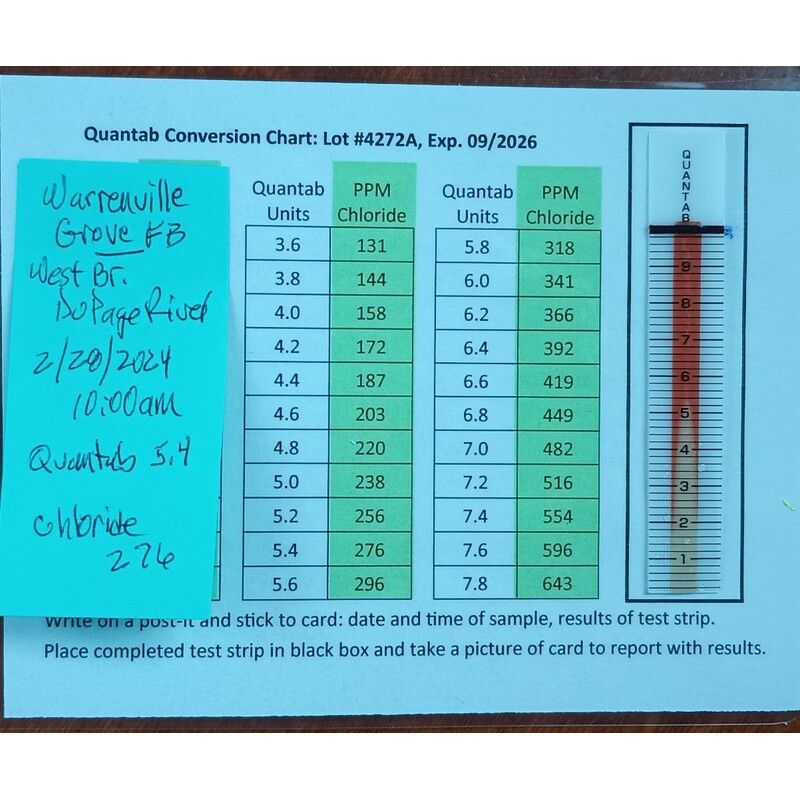 Quantab Conversion Chart: Lot #4272A, Exp. 09/2026
Warrenville
Grove FB
West Br.
DuPage River
2/20/2024
10:00am
Quantab 5.4
Chloride
276
Quantab Units PPM Chloride
3.6 131
3.8 144
4.0 158
4.2 172
4.4 187
4.6 203
4.8 220
5.0 238
5.2 256
5.4 276
5.6 296
Quantab Units PPM Chloride
5.8 318
6.0 341
6.2 366
6.4 392
6.6 419
6.8 449
7.0 482
7.2 516
7.4 554
7.6 596
7.8 643
QUANTAB
9
8
7
6
5
4
3
2
1
Write on a post-it and stick to card: date and time of sample, results of test strip.
Place completed test strip in black box and take a picture of card to report with results.